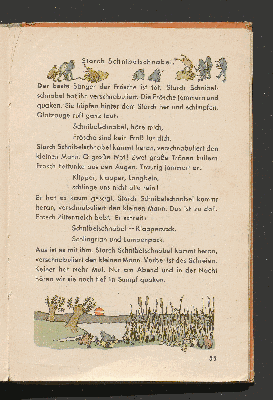 Storch Schnibelschnabel
Der beste Sänger der Frösche ist tot. Storch Schnibel-
schnabel hat ihn verschnabuliert. Die Frösche jammern und
quaken. Sie hüpfen hinter dem Storch her und schimpfen.
Glotzauge ruft ganz laut:
Schnibelschnabel, höre mich,
Frösche sind kein Fraß für dich.
Storch Schnibelschnabel kommt heran, verschnabuliert den
kleinen Mann. O große Not! Zwei große Tränen kullern
Frosch aus den Augen. Traurig jammert er:
Klipper, klapper, Langbein,
schlinge uns nicht alle rein!
Er hat es kaum gesagt. Storch Schnibelschnabel kommt
heran, verschnabuliert den kleinen Mann. Das ist zu
Frosch bebt. Er schreit:
Schnibelschnabel — Klappersack,
Schlingrian und Lumpenpack.
Aus ist es mit ihm. Storch Schnibelschnabel kommt heran,
verschnabuliert den kleinen Mann. Vorbei ist das Schreien.
Keiner hat mehr Mut. Nur am Abend und in der Nacht
hören wir sie noch tief im Sumpf quaken.